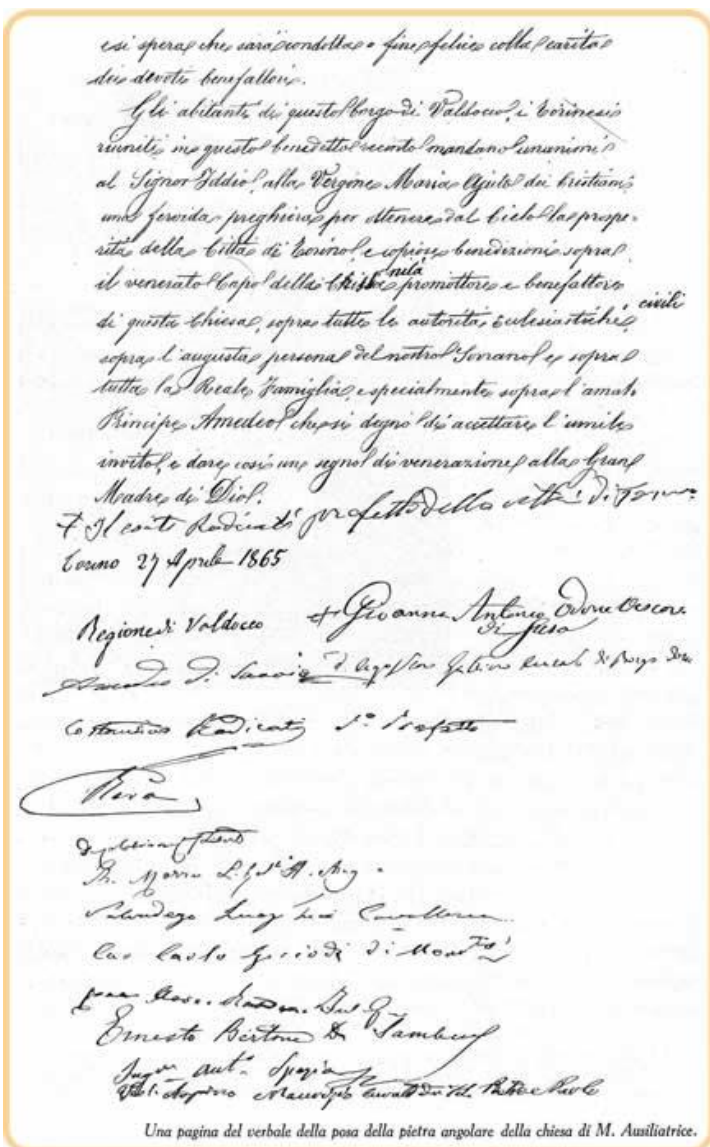 e si spera che sarà condotta a fine felice colla carità
dei devoti benefattori.
Gli abitanti di questo borgo di Valdocco, i torinesi
riuniti in questo benedetto recinto mandano unanimi
al Signor Iddio, alla Vergine Maria Ajuto dei Cristiani
una fervida preghiera per ottenere dal Cielo la prospe-
rità della Città di Torino, e copiose benedizioni sopra
il venerato Capo della Cristianità promottore e benefattore
di questa Chiesa, sopra tutte le autorità Ecclesiastiche, civili
sopra l'augusta persona del nostro Sovrano e sopra
tutta la Reale Famiglia e specialmente sopra l'amato
Principe Amedeo che si degnò di accettare l'umile
invito, e dare così un segno di venerazione alla Gran
Madre di Dio.
Il conte Radicati prefetto della città di Torino
Torino 27 Aprile 1865
Regione di Valdocco + Giovanni Antonio Odone Vescovo
di Susa
Amedeo di Savoia D. Agostino Gattino Curato di Borgo Dora
Costantino Radicati Prefetto
Rorà
Morra
Luigi Cavaliere
Cav. Carlo
Ernesto Bertone di Sambuy
Ant. Spezia
Una pagina del verbale della posa della pietra angolare della chiesa di M. Ausiliatrice.